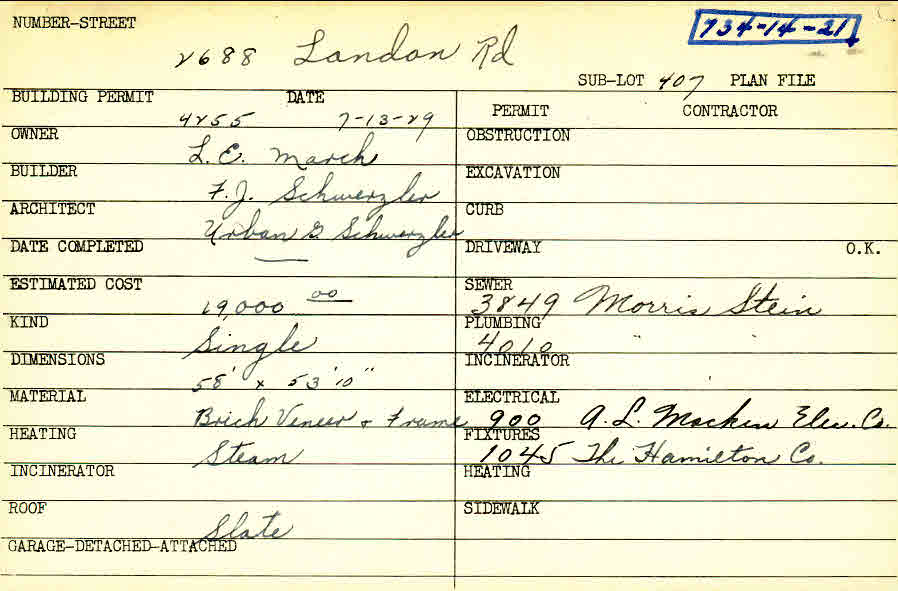 NUMBER-STREET
734-14-21
2688 Landon Rd
SUB-LOT 407 PLAN FILE
BUILDING PERMIT DATE
4255 7-13-29
PERMIT CONTRACTOR
OWNER
L.E. March
BUILDER
F.J. Schwerzler
ARCHITECT
Urban G Schwerzler
DATE COMPLETED
ESTIMATED COST
19,000 00
KIND
Single
DIMENSIONS
58' x 53'10"
MATERIAL
Brick Veneer & Frame
HEATING
Steam
INCINERATOR
ROOF
Slate
GARAGE-DETACHED-ATTACHED
OBSTRUCTION
EXCAVATION
CURB
DRIVEWAY O.K.
SEWER
3849 Morris Stein
PLUMBING
4010 " "
INCINERATOR
ELECTRICAL
900 A.L. Elec. Co.
FIXTURES
1045 The Hamilton Co.
HEATING
SIDEWALK